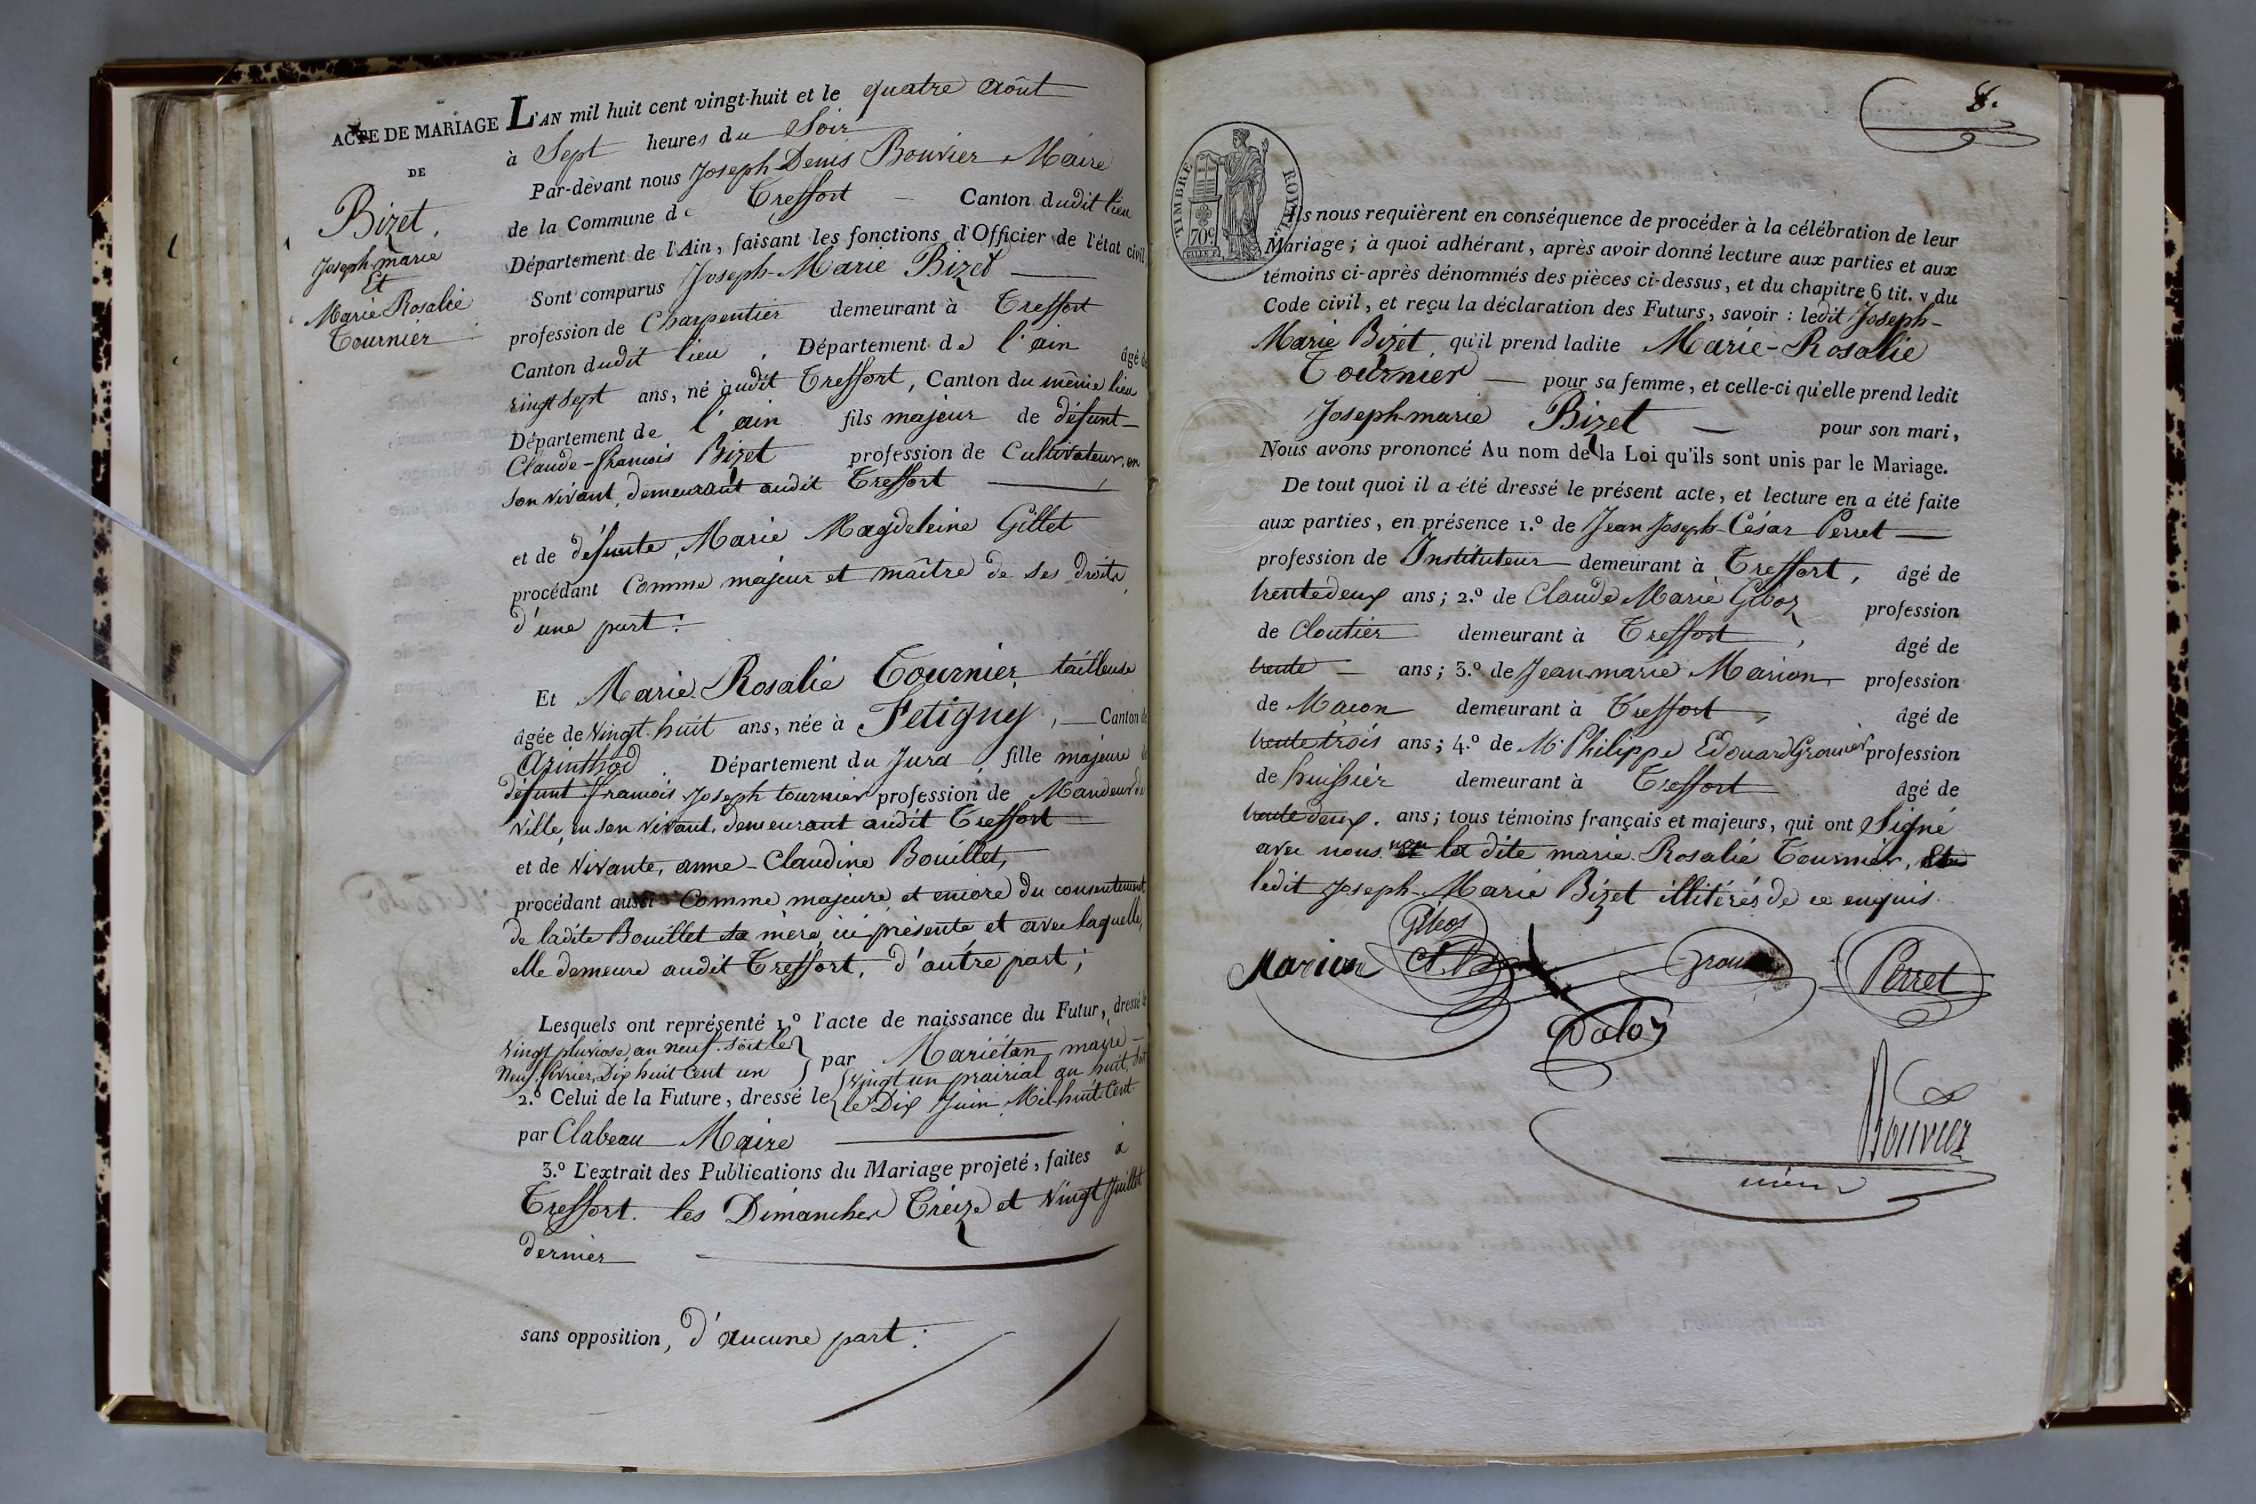 ACTE DE MARIAGE
DE
Bizet,
Joseph-marie
Et
Marie Rosalie
Tournier
L'AN mil huit cent vingt-huit et le quatre Août
à Sept heures du Soir
Par-devant nous Joseph Denis Bouvier Maire
de la Commune de Treffort Canton dudit lieu
Département de l'Ain, faisant les fonctions d'Officier de l'état civil
Sont comparus Joseph-Marie Bizet
profession de Charpentier demeurant à Treffort
Canton dudit lieu, Département de l'ain âgé de
vingt sept ans, né audit Treffort, Canton du même lieu
Département de l'ain fils majeur de défunt
Claude-francois Bizet profession de Cultivateur, en
son vivant, demeurant audit Treffort
et de défunte, Marie Magdeleine Gillet
procédant Comme majeur et maître de ses droits,
d'une part:
Et Marie Rosalie Tournier tailleuse
âgée de Vingt-huit ans, née à Fetigny, Canton de
Arinthod Département du Jura, fille majeure de
défunt francois Joseph tournier profession de Mandeur de
Ville, en son vivant, demeurant audit Treffort
et de vivante, anne-Claudine Bouillet,
procédant aussi Comme majeure, et encore du consentement
de ladite Bouillet sa mère, ici présente et avec laquelle,
elle demeure audit Treffort, d'autre part;
Lesquels ont représenté 1.º l'acte de naissance du Futur, dressé le
vingt pluviose, an neuf. soit le
neuf fevrier, Dix huit Cent un par Mariétan maire
2.º Celui de la Future, dressé le vingt un prairial an huit, soit
le Dix Juin Mil-huit-Cent
par Clabeau Maire
3.º L'extrait des Publications du Mariage projeté, faites à
Treffort. les Dimanches Treize et vingt Juillet
dernier
sans opposition, d'aucune part:
8.
TIMBRE ROYAL
70c
Ils nous requièrent en conséquence de procéder à la célébration de leur
Mariage; à quoi adhérant, après avoir donné lecture aux parties et aux
témoins ci-après dénommés des pièces ci-dessus, et du chapitre 6 tit. v du
Code civil, et reçu la déclaration des Futurs, savoir: ledit Joseph-
Marie Bizet, qu'il prend ladite Marie-Rosalie
Tournier pour sa femme, et celle-ci qu'elle prend ledit
Joseph-marie Bizet pour son mari,
Nous avons prononcé Au nom de la Loi qu'ils sont unis par le Mariage.
De tout quoi il a été dressé le présent acte, et lecture en a été faite
aux parties, en présence 1.º de Jean Joseph-César Perret
profession de Instituteur demeurant à Treffort, âgé de
trente deux ans; 2.º de Claude Marie profession
de Cloutier demeurant à Treffort, âgé de
trente ans; 3.º de Jean-marie Marion profession
de Macon demeurant à Treffort, âgé de
trente trois ans; 4.º de Mr Philippe Edouard profession
de huissier demeurant à Treffort âgé de
trente deux. ans; tous témoins français et majeurs, qui ont Signé
avec nous non la dite marie Rosalie Tournier,
ledit Joseph-Marie Bizet illitérés de ce enquis.
Marion
Perret
Bouvier